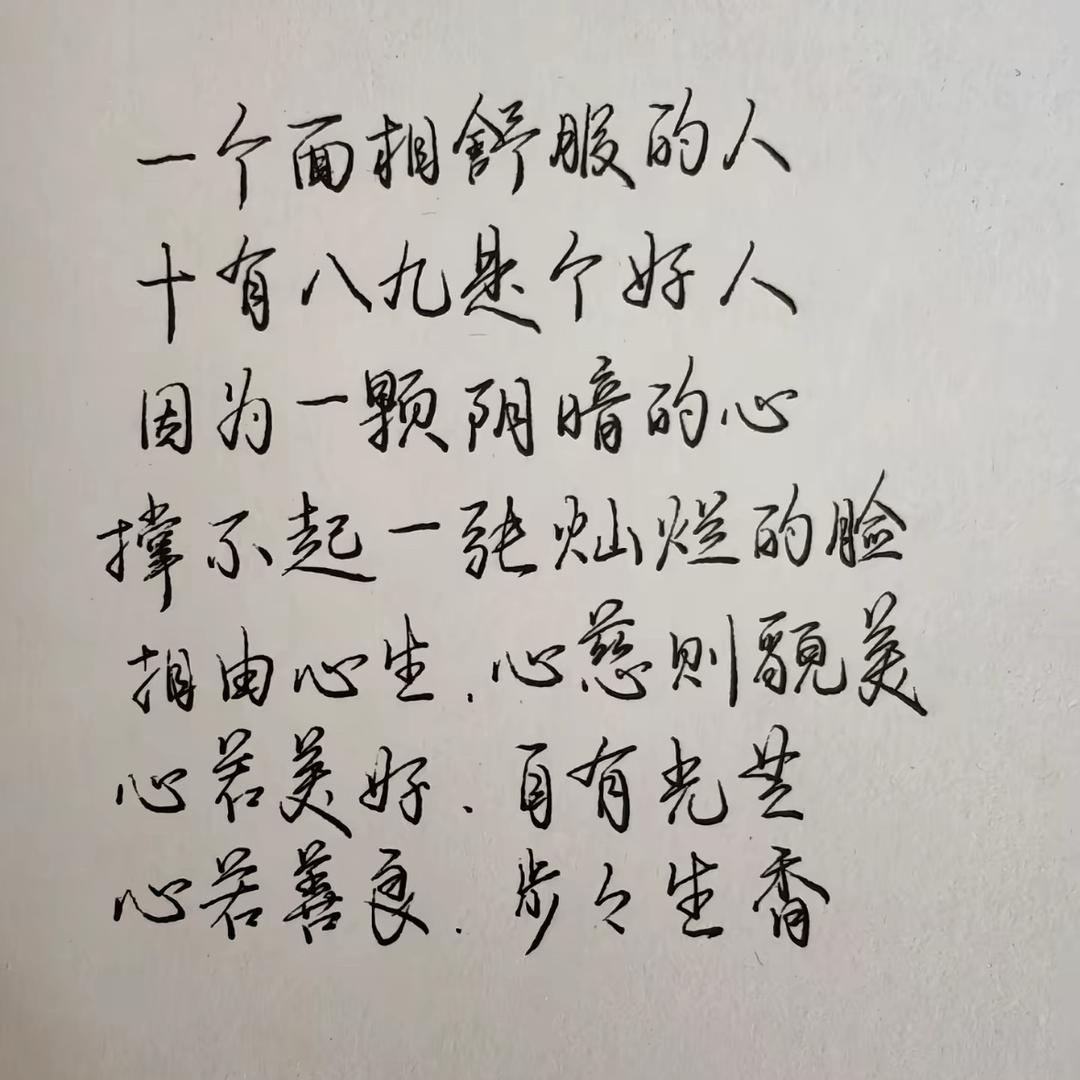 一个面相舒服的人
十有八九是个好人
因为一颗阴暗的心
撑不起一张灿烂的脸
相由心生.心慈则貌美
心若美好.自有光芒
心若善良.步々生香